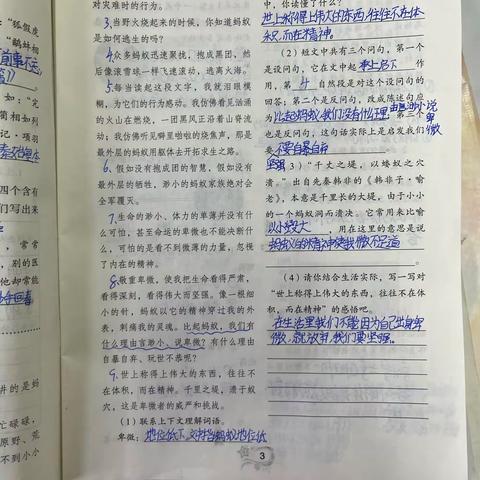 对灾难时的行为。
3,当野火烧起来的时候,你知道蚂蚁
是如何逃生的吗?
4,众多蚂蚁迅速聚拢,抱成黑团,然
后像滚雪球一样飞速滚动,逃离火海。
5,每当读起这段文字,我就泪眼模
糊,为它们的行为感动。我仿佛看见汹涌
的火山在燃烧,一团黑风正沿着山脊流
动;我仿佛听见噼里啪啦的烧焦声,那是
最外层的蚂蚁用躯体去开拓求生之路。
6,假如没有抱成团的智慧,假如没有
最外层的牺牲,渺小的蚂蚁家族绝对会
全军覆灭。
7,生命的渺小、体力的单薄并没有什
么可怕,甚至命运的卑微也不能决断什
么,可怕的是看不到微薄的力量,忽视
了内在的精神。
8,敬重卑微,使我把生命看得严肃,
看得深刻,看得伟大而坚强。像一根细
小的针,蚂蚁以它的精神穿过我的外
表,刺痛我的灵魂。比起蚂蚁,我们有
什么理由言渺小、说卑微?有什么理由
自暴自弃、玩世不恭呢?
9,世上称得上伟大的东西,往往不
在体积,而在精神。千里之堤,溃于蚁
穴,这是卑微者的威严和挑战。
(1)联系上下文理解词语。
卑微:地位低下。文中指蚂蚁地位低
中,你读懂了什么?
世上称得上伟大的东西,往往不在体
积,而在精神。
(2)短文中共有三个问句,第一个
是设问句,它在文中起 承上启下 作
用,第 4 自然段是对这个设问句的
回答;第二个是反问句,改成陈述句应
为比起蚂蚁,我们没有什么理由言渺小、说卑微
;第三个
也是反问句,这句话实际上是启发我们
要 不要自暴自弃
坚强
(3)“千丈之堤,以蝼蚁之穴
溃。”出自先秦韩非的《韩非子·喻
老》,本意是千里长的大堤,由于小小
的一个蚂蚁洞而溃决。它常用来比喻
以小毁大,用在这里的意思是说
(4)请你结合生活实际,写一写对
“世上称得上伟大的东西,往往不在体
积,而在精神”的感悟吧。
在生活里我们不能因为自己出身卑
微,就放弃,我们要坚强。
3
“狐假虎
“鹬蚌相
如:“完
蔺相如列
记·项羽
四个含有
们写出来
常常
别的医
他却常能
讲的是蚂
亡碌碌,
原野、荒
不到小小